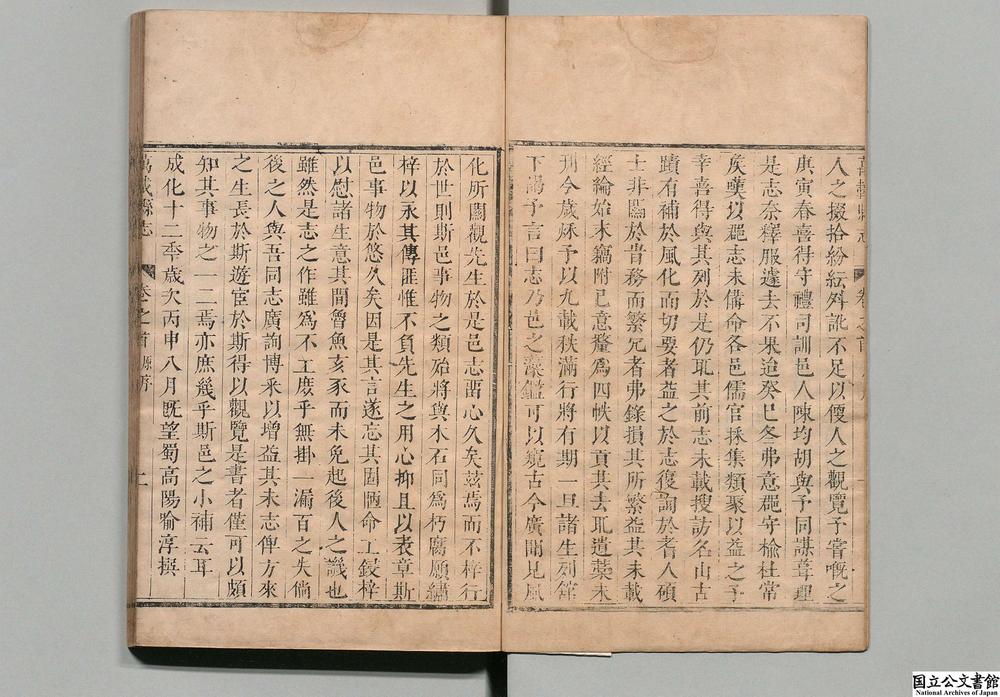 人之掇拾紛紜舛訛不足以便人之觀覽予嘗嘅之
庚寅春喜得守禮司訓邑人陳均胡與予同謀葺理
是志奈釋服遽去不果迨癸巳冬弗意郡守榆社常
侯嘆以郡志未備命各邑儒官採集類聚以益之予
幸喜得與其列於是仍耴其前志未載搜訪名山古
蹟有補於風化而切要者益之於志復詢於耆人碩
士非關於昔務而繁冗者弗錄損其所繁益其未載
經綸始末竊附已意釐為四帙以貢其去耴遺藁未
刋今歲秌予以九載秩滿行將有期一旦諸生列館
下謁予言曰志乃邑之藻鑑可以窺古今廣聞見風
化所關觀先生於是邑志留心久矣茲焉而不梓行
於世則斯邑事物之類殆將與木石同為朽腐願繡
梓以永其傳匪惟不負先生之用心抑且以表章斯
邑事物於悠久矣因是其言遂忘其固陋命工鋟梓
以慰諸生意其間魯魚亥豕而未免起後人之譏也
雖然是志之作雖為不工庶乎無掛一漏百之失倘
後之人與吾同志廣詢博釆以增益其未志俾方來
之生長於斯遊宦於斯得以觀覽是書者僅可以頗
知其事物之一二焉亦庶幾乎斯邑之小補云耳
成化十二年歲次丙申八月既望蜀高陽喻淳撰
萬載縣志 卷之首 原序
国立公文書館
National Archives of Japan